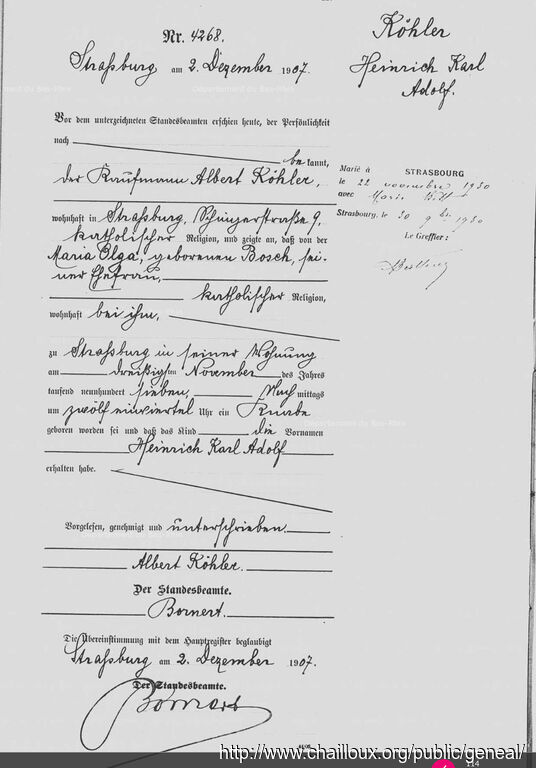 Nr. 4268.
Straßburg am 2. Dezember 1907.
Köhler
Heinrich Karl
Adolf.
Vor dem unterzeichneten Standesbeamten erschien heute, der Persönlichkeit
nach be kannt,
der Kaufmann Albert Köhler,
wohnhaft in Straßburg, 9,
katholischer Religion, und zeigte an, daß von der
Maria Olga, geborenen Bosch, sei-
ner Ehefrau,
katholischer Religion,
wohnhaft bei ihm,
zu Straßburg in seiner Wohnung
am dreißigsten November des Jahres
tausend neunhundert sieben, Nach mittags
um zwölf einviertel Uhr ein Knabe
geboren worden sei und daß das Kind die Vornamen
Heinrich Karl Adolf
erhalten habe.
Vorgelesen, genehmigt und unterschrieben
Albert Köhler.
Der Standesbeamte.
Bornert.
Die Übereinstimmung mit dem Hauptregister beglaubigt
Straßburg am 2. Dezember 1907.
Der Standesbeamte.
Bornert
Marié à STRASBOURG
le 22 novembre 1930
avec Marie
Strasbourg, le 30 9bre 1930
Le Greffier:
Département du Bas-Rhin
http://www.chailloux.org/public/geneal/
114